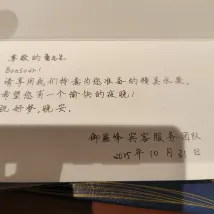 尊敬的
Bonsoir!
请享用我们特意为您准备的精美水果,
希望您有一个愉快的夜晚!
祝好梦,晚安.
御温峰宾客服务团队
2015年10月31日